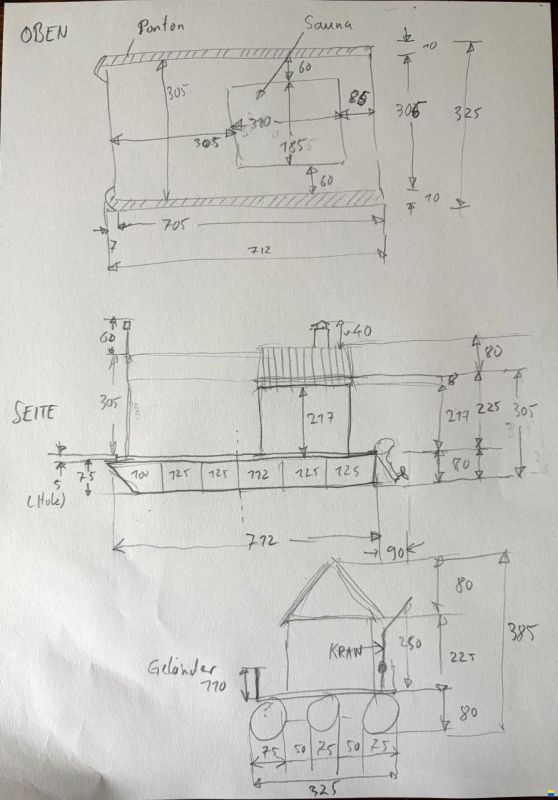 OBEN
Ponton
Sauna
10
60
305
300
86
305
185
305
325
60
10
705
7
712
60
~40
80
SEITE
305
217
8
217
225
305
5
(Holz)
75
100
125
125
112
125
125
80
712
90
80
KRAN
250
225
385
Geländer
110
80
75
50
75
50
75
325